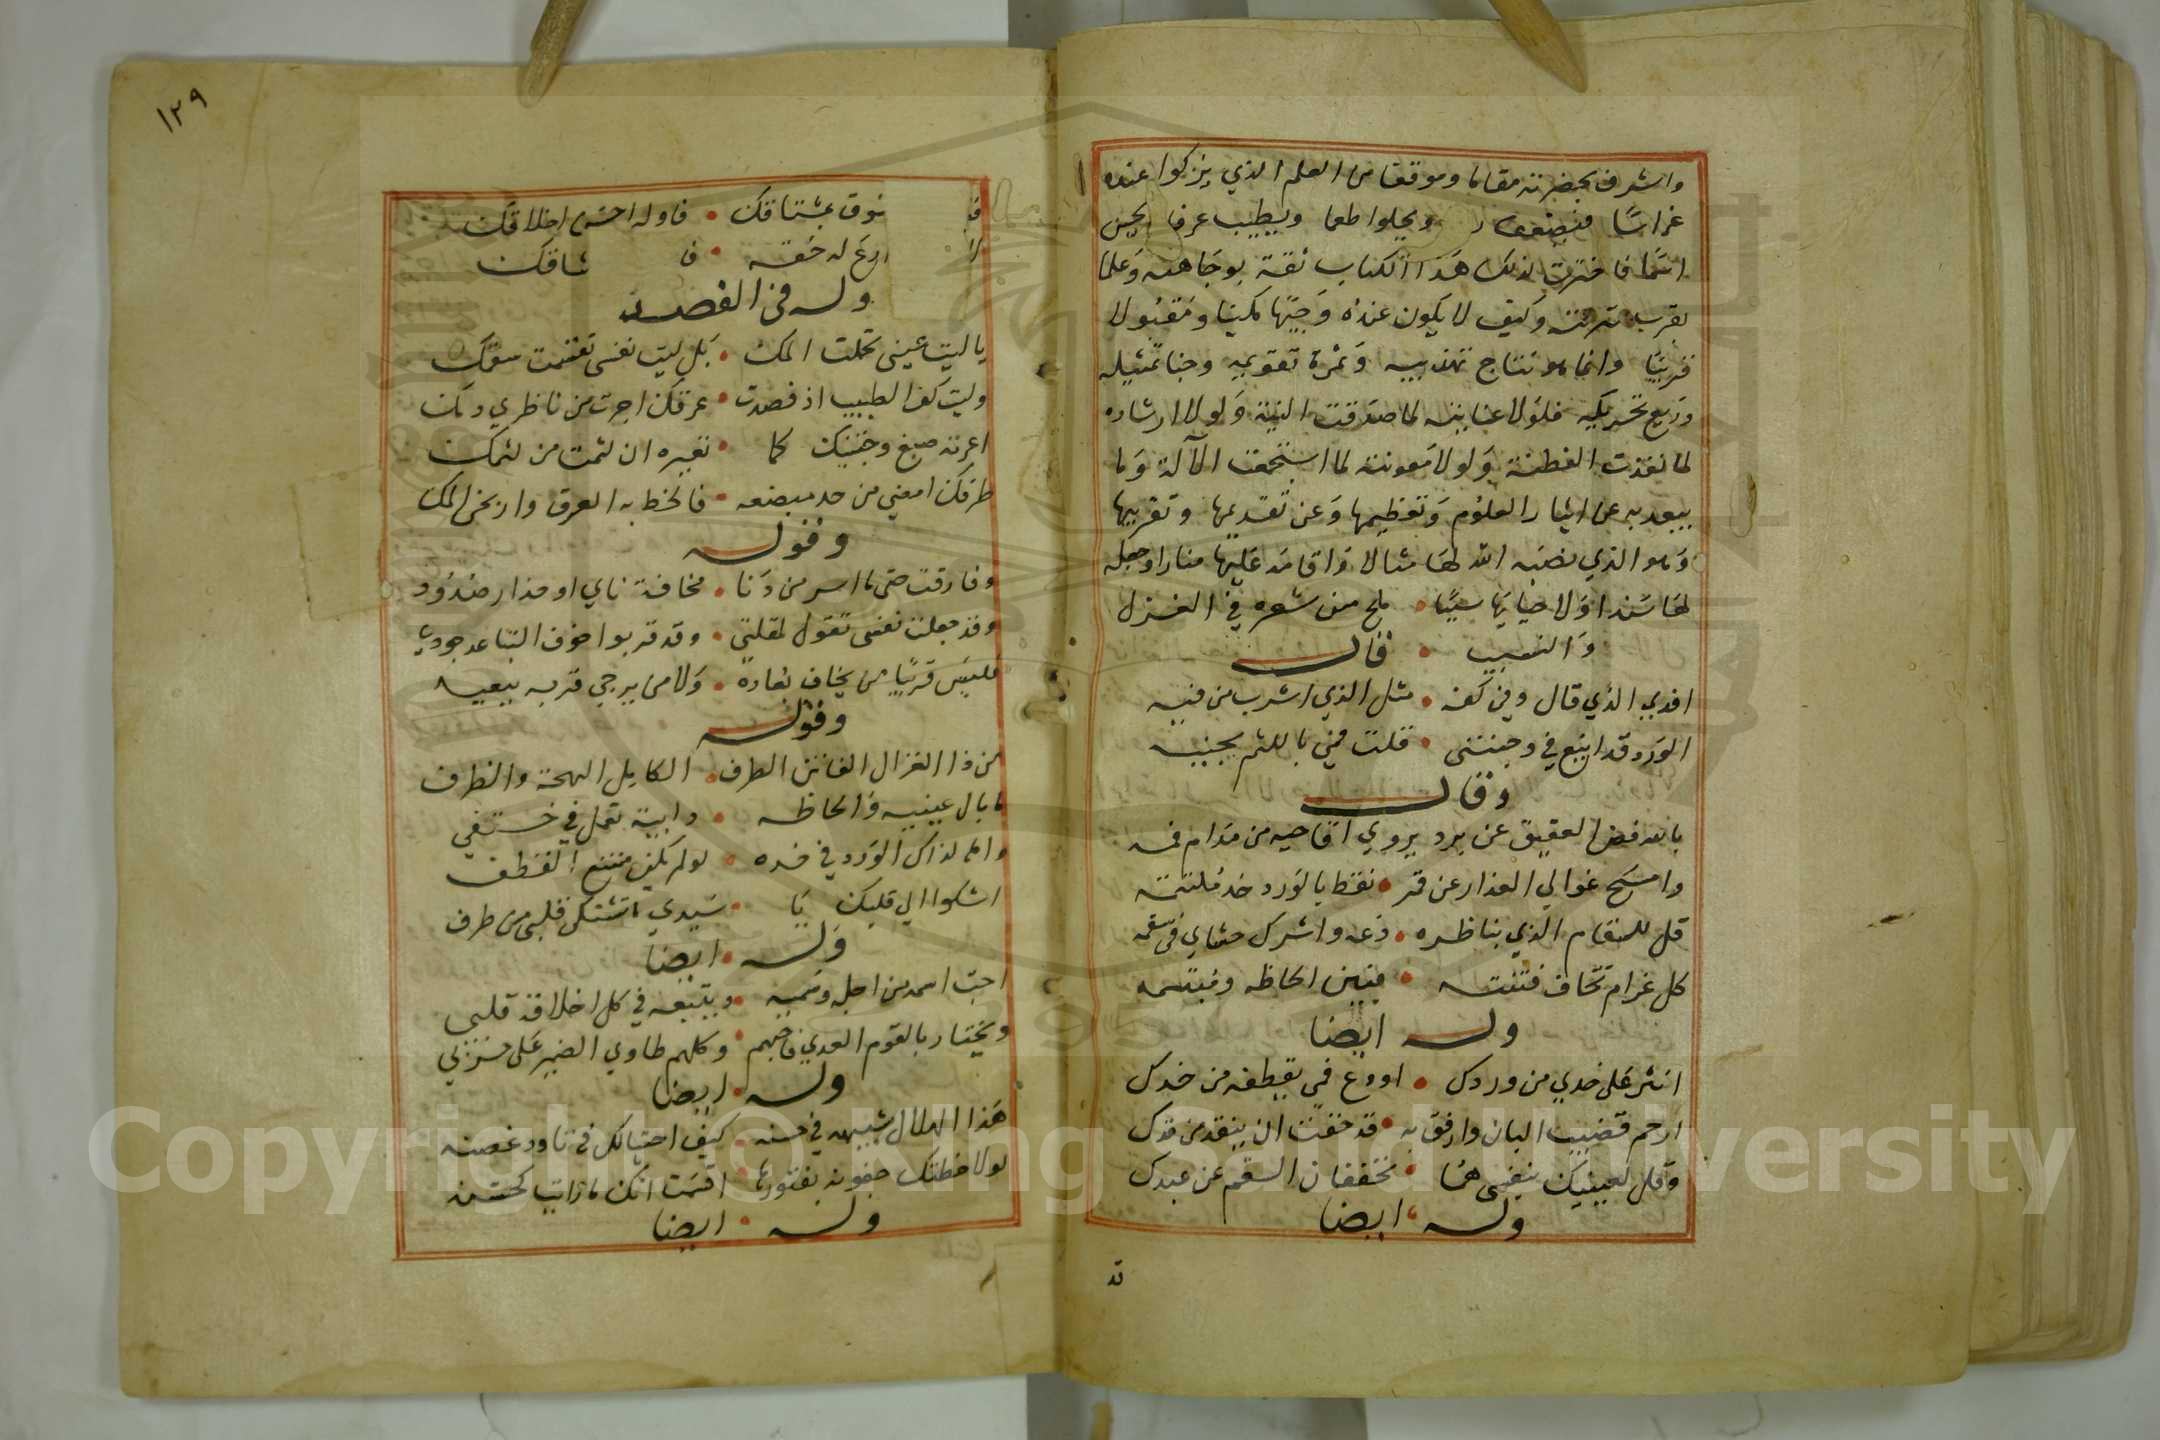 واشرف بحضرته مقاما وموقفا من العلم الذي يزكوا عنده
غراسًا ويحلوا طعما ويطيب عرفا يحسن
اسما فاخترت لذلك هذا الكتاب ثقة بوجاهته وعلما
بقرب وكيف لا يكون عنده وجيها مكينا ومقبولا
قريبًا وانما هو نتاج تهذيبه وثمرة تقويمه وجنا تمثيله
وريع تحريكه فلولا عنايته لما صدقت النية ولولا ارشاده
لما نفذت الفطنة ولولا معونته لما استجمعت الآلة وما
يبعد به عن ايثار العلوم وتعظيمها وعن تقديمها وتقريبها
وهو الذي نصبه الله لها مثالا واقامه عليها منارا وجعله
لها سندا ولاحيائها سببًا ملح من شعره في الغزل
والنسيب قال
افدي الذي قال وفي كفه مثل الذي اشرب من فيه
الورد قد اينع في وجنتي قلت فمي باللثم يجنيه
وقال
بالله فض العقيق عن برد يروي اقاحيه من مدام فمه
وامسح غوالي العذار عن قمر نقط بالورد خد ملتثمه
قل للسقام الذي بناظره دعه واشرك حشاي في سقمه
كل غرام تخاف فتنته فبين الحاظه ومبتسمه
وله ايضا
انثر على خدي من وردك اودع فمي يقطفه من خدك
ارحم قضيب البان وارفق به قد خفت ان ينقد من قدك
وقل لعينيك بنفسي هما تخففان السقم عن عبدك
وله ايضا
قد
١٢٩
شوق بمشتاقك فاوله احسن اخلاقك
وله في الفصد
يا ليت عيني تحملت المك بل ليت نفسي تقسمت سقمك
وليت كف الطبيب اذ فصدت عرقك اجرت من ناظري دمك
اعرته صبغ وجنتيك كما تعيره ان لثمت من لثمك
طرفك امضي من حد مبضعه فالحظ به العرق واربحن المك
وقوله
وفارقت حتى ما اسر من دنا مخافة ناي او حذار صدود
وقد جعلت نفسي تقول لمقلتي وقد قربوا خوف التباعد جودي
فليس قريبًا من يخاف بعاده ولا من يرجي قربه ببعيد
وقوله
من ذا الغزال الفاتن الطرف الكامل البهجة والظرف
ما بال عينيه والحاظه دايبة تعمل في حتفي
واها لذاك الورد في خده لو لم يكن ممتنع القطف
اشكوا الي قلبك يا سيدي ما تشتكي قلبي من طرف
وله ايضا
احب اسمه من اجله وسميه ويتبعه في كل اخلاقه قلبي
ويجتاز بالقوم العدي فاحبهم وكلهم طاوي الضمير على حزبي
وله ايضا
هذا الهلال شبيهه في حسنه
وله ايضا
Copyright © King Saud University